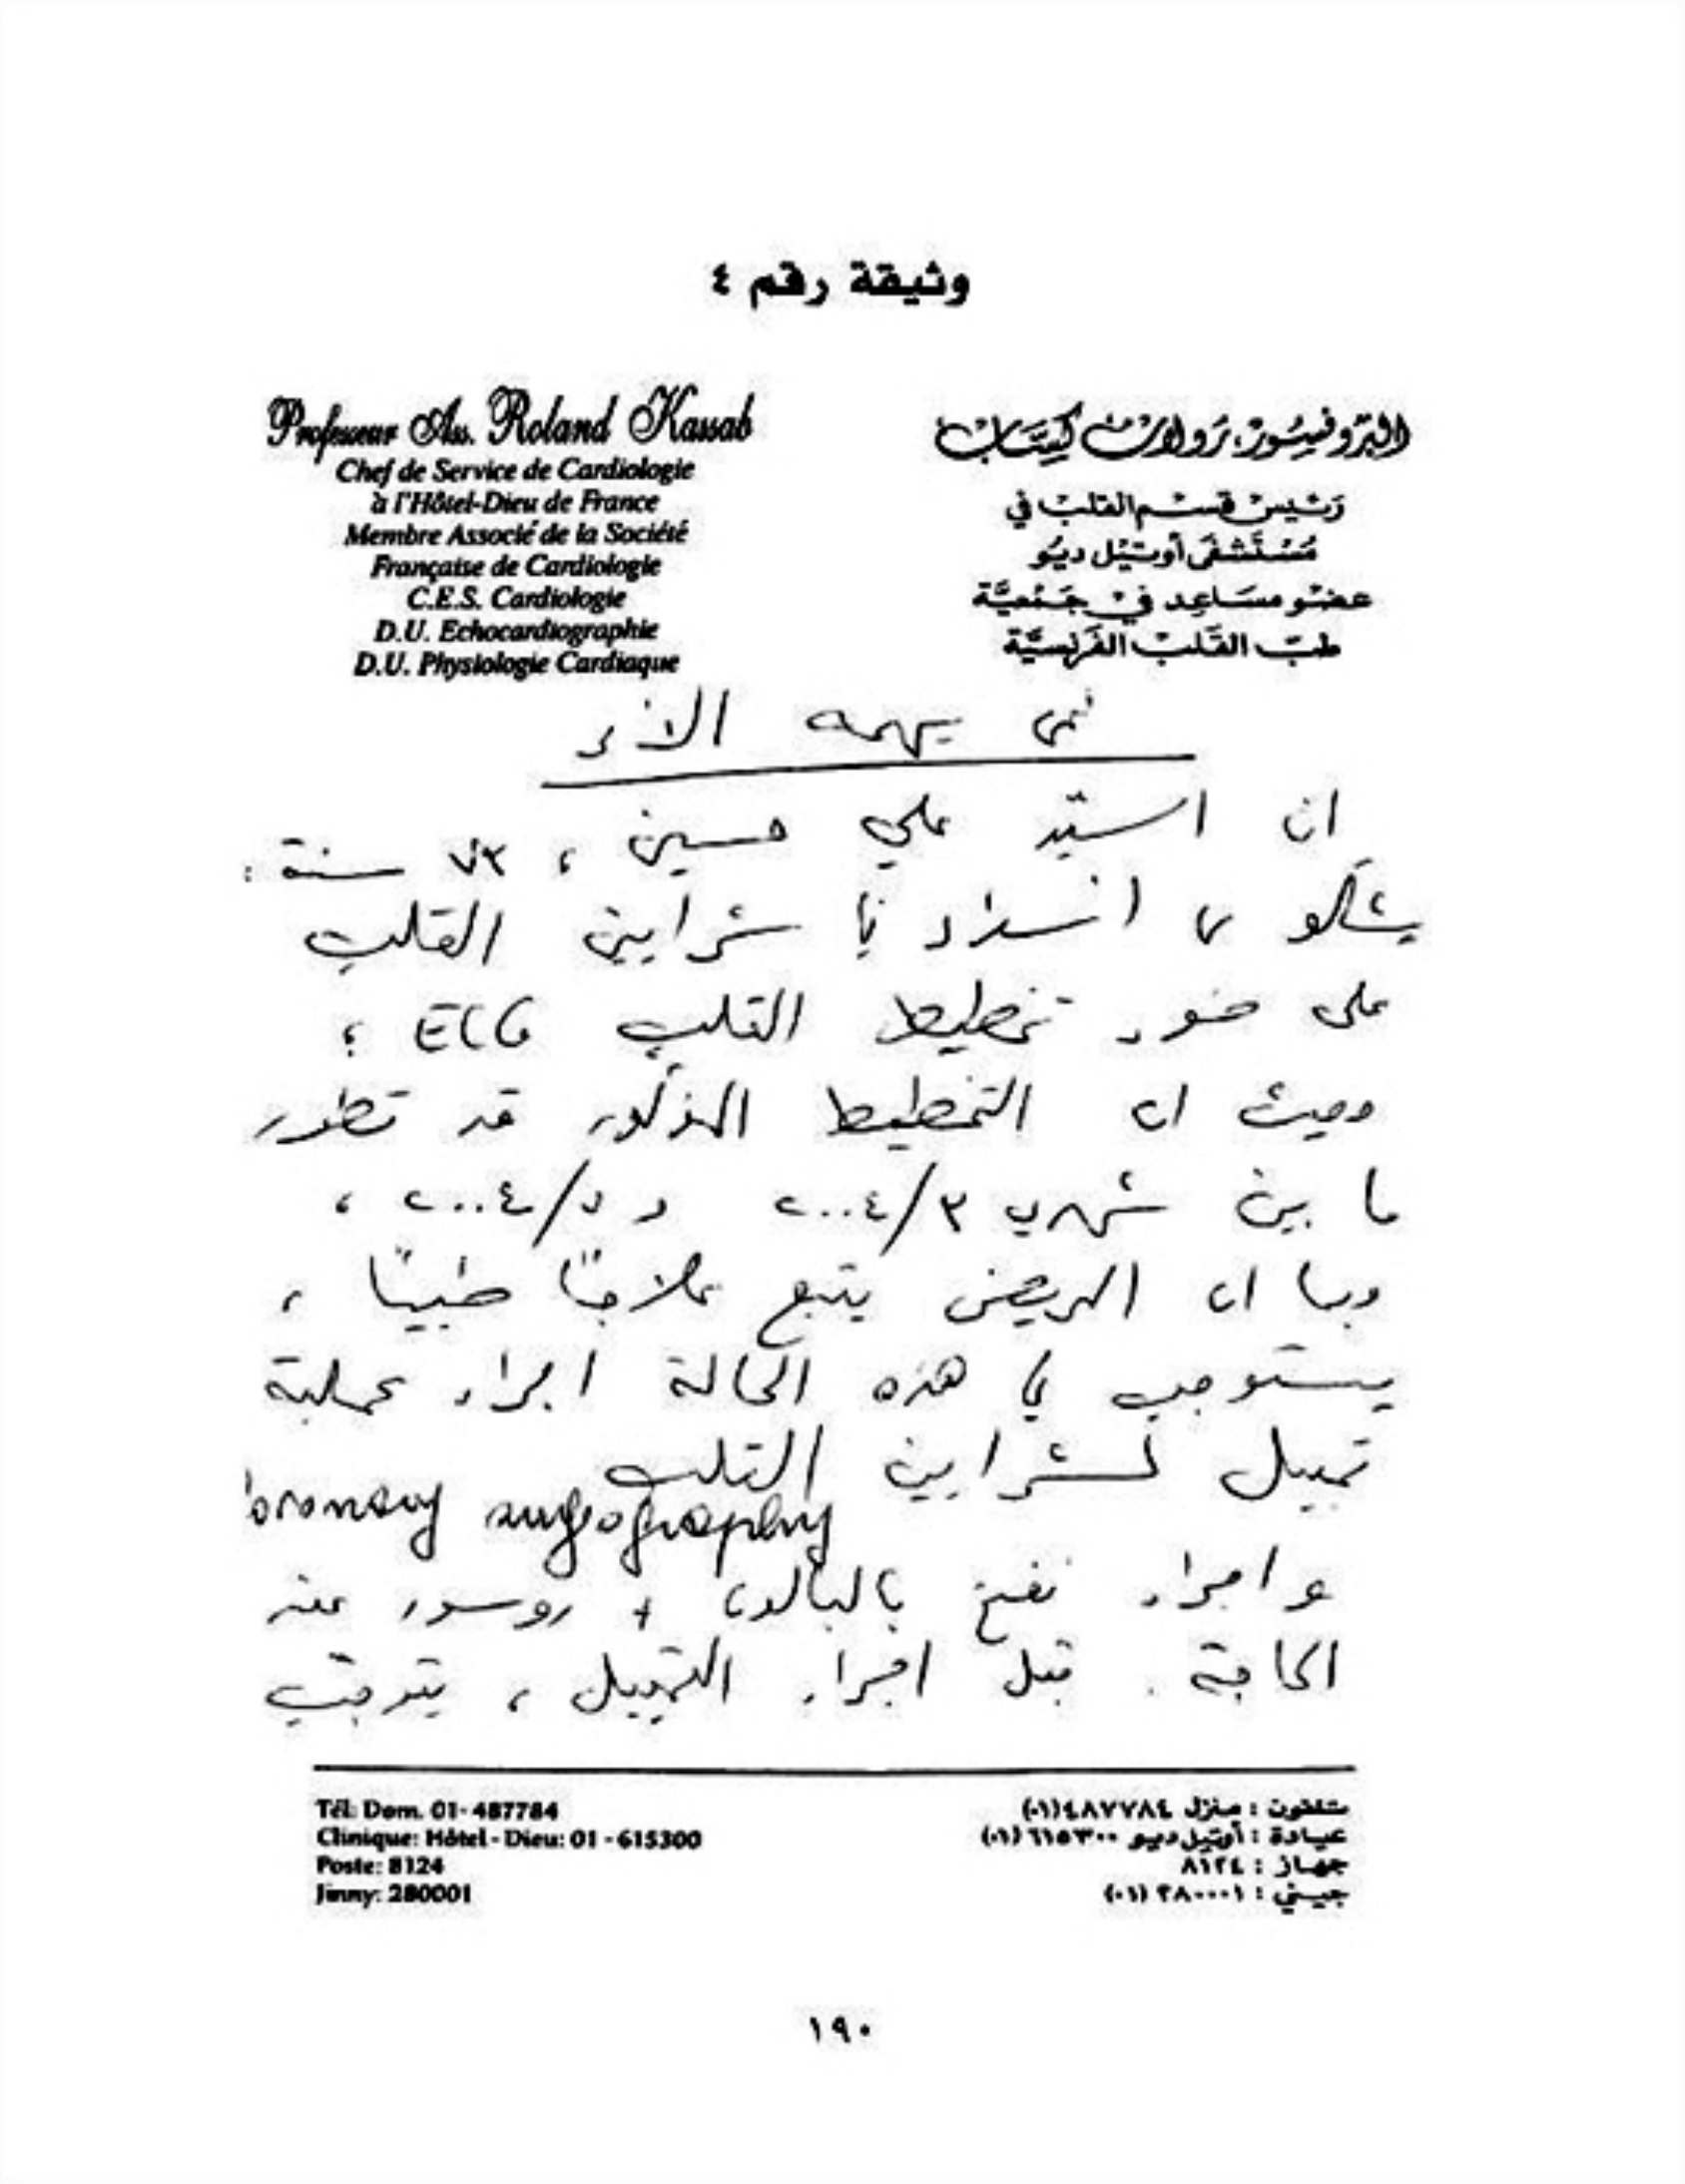 وثيقة رقم ٤
Professeur Ass. Roland Kassab
Chef de Service de Cardiologie
à l'Hôtel-Dieu de France
Membre Associé de la Société
Française de Cardiologie
C.E.S. Cardiologie
D.U. Echocardiographie
D.U. Physiologie Cardiaque
البروفيسور رولان كسَّاب
رَئيس قسم القلب في
مُستَشفَى أوتيل ديو
عضو مسَاعِد في جَمْعيَّة
طبّ القَلب الفَرنسيَّة
لمن يهمه الأمر
ان السيّد علي حسين ، ٧٣ سنة :
يشكو من انسداد في شرايين القلب
على ضوء تخطيط القلب ECG ؛
وحيث ان التخطيط المذكور قد تطور
ما بين شهري ٣/٢٠٠٤ و ٥/٢٠٠٤ ،
وبما ان المريض يتبع علاجًا طبيًا ،
يستوجب في هذه الحالة اجراء عملية
تمييل لشرايين القلب
Coronary angiography
و اجراء نفخ بالبالون + روسور عند
الحاجة . قبل اجراء التمييل ، يتوجّب
Tél: Dom. 01-487784
Clinique: Hôtel - Dieu: 01 - 615300
Poste: 8124
Jinny: 280001
تلفون : منزل ٤٨٧٧٨٤(٠١)
عيادة : أوتيل ديو ٦١٥٣٠٠(٠١)
جهاز : ٨١٢٤
جيني : ٢٨٠٠٠١ (٠١)
١٩٠